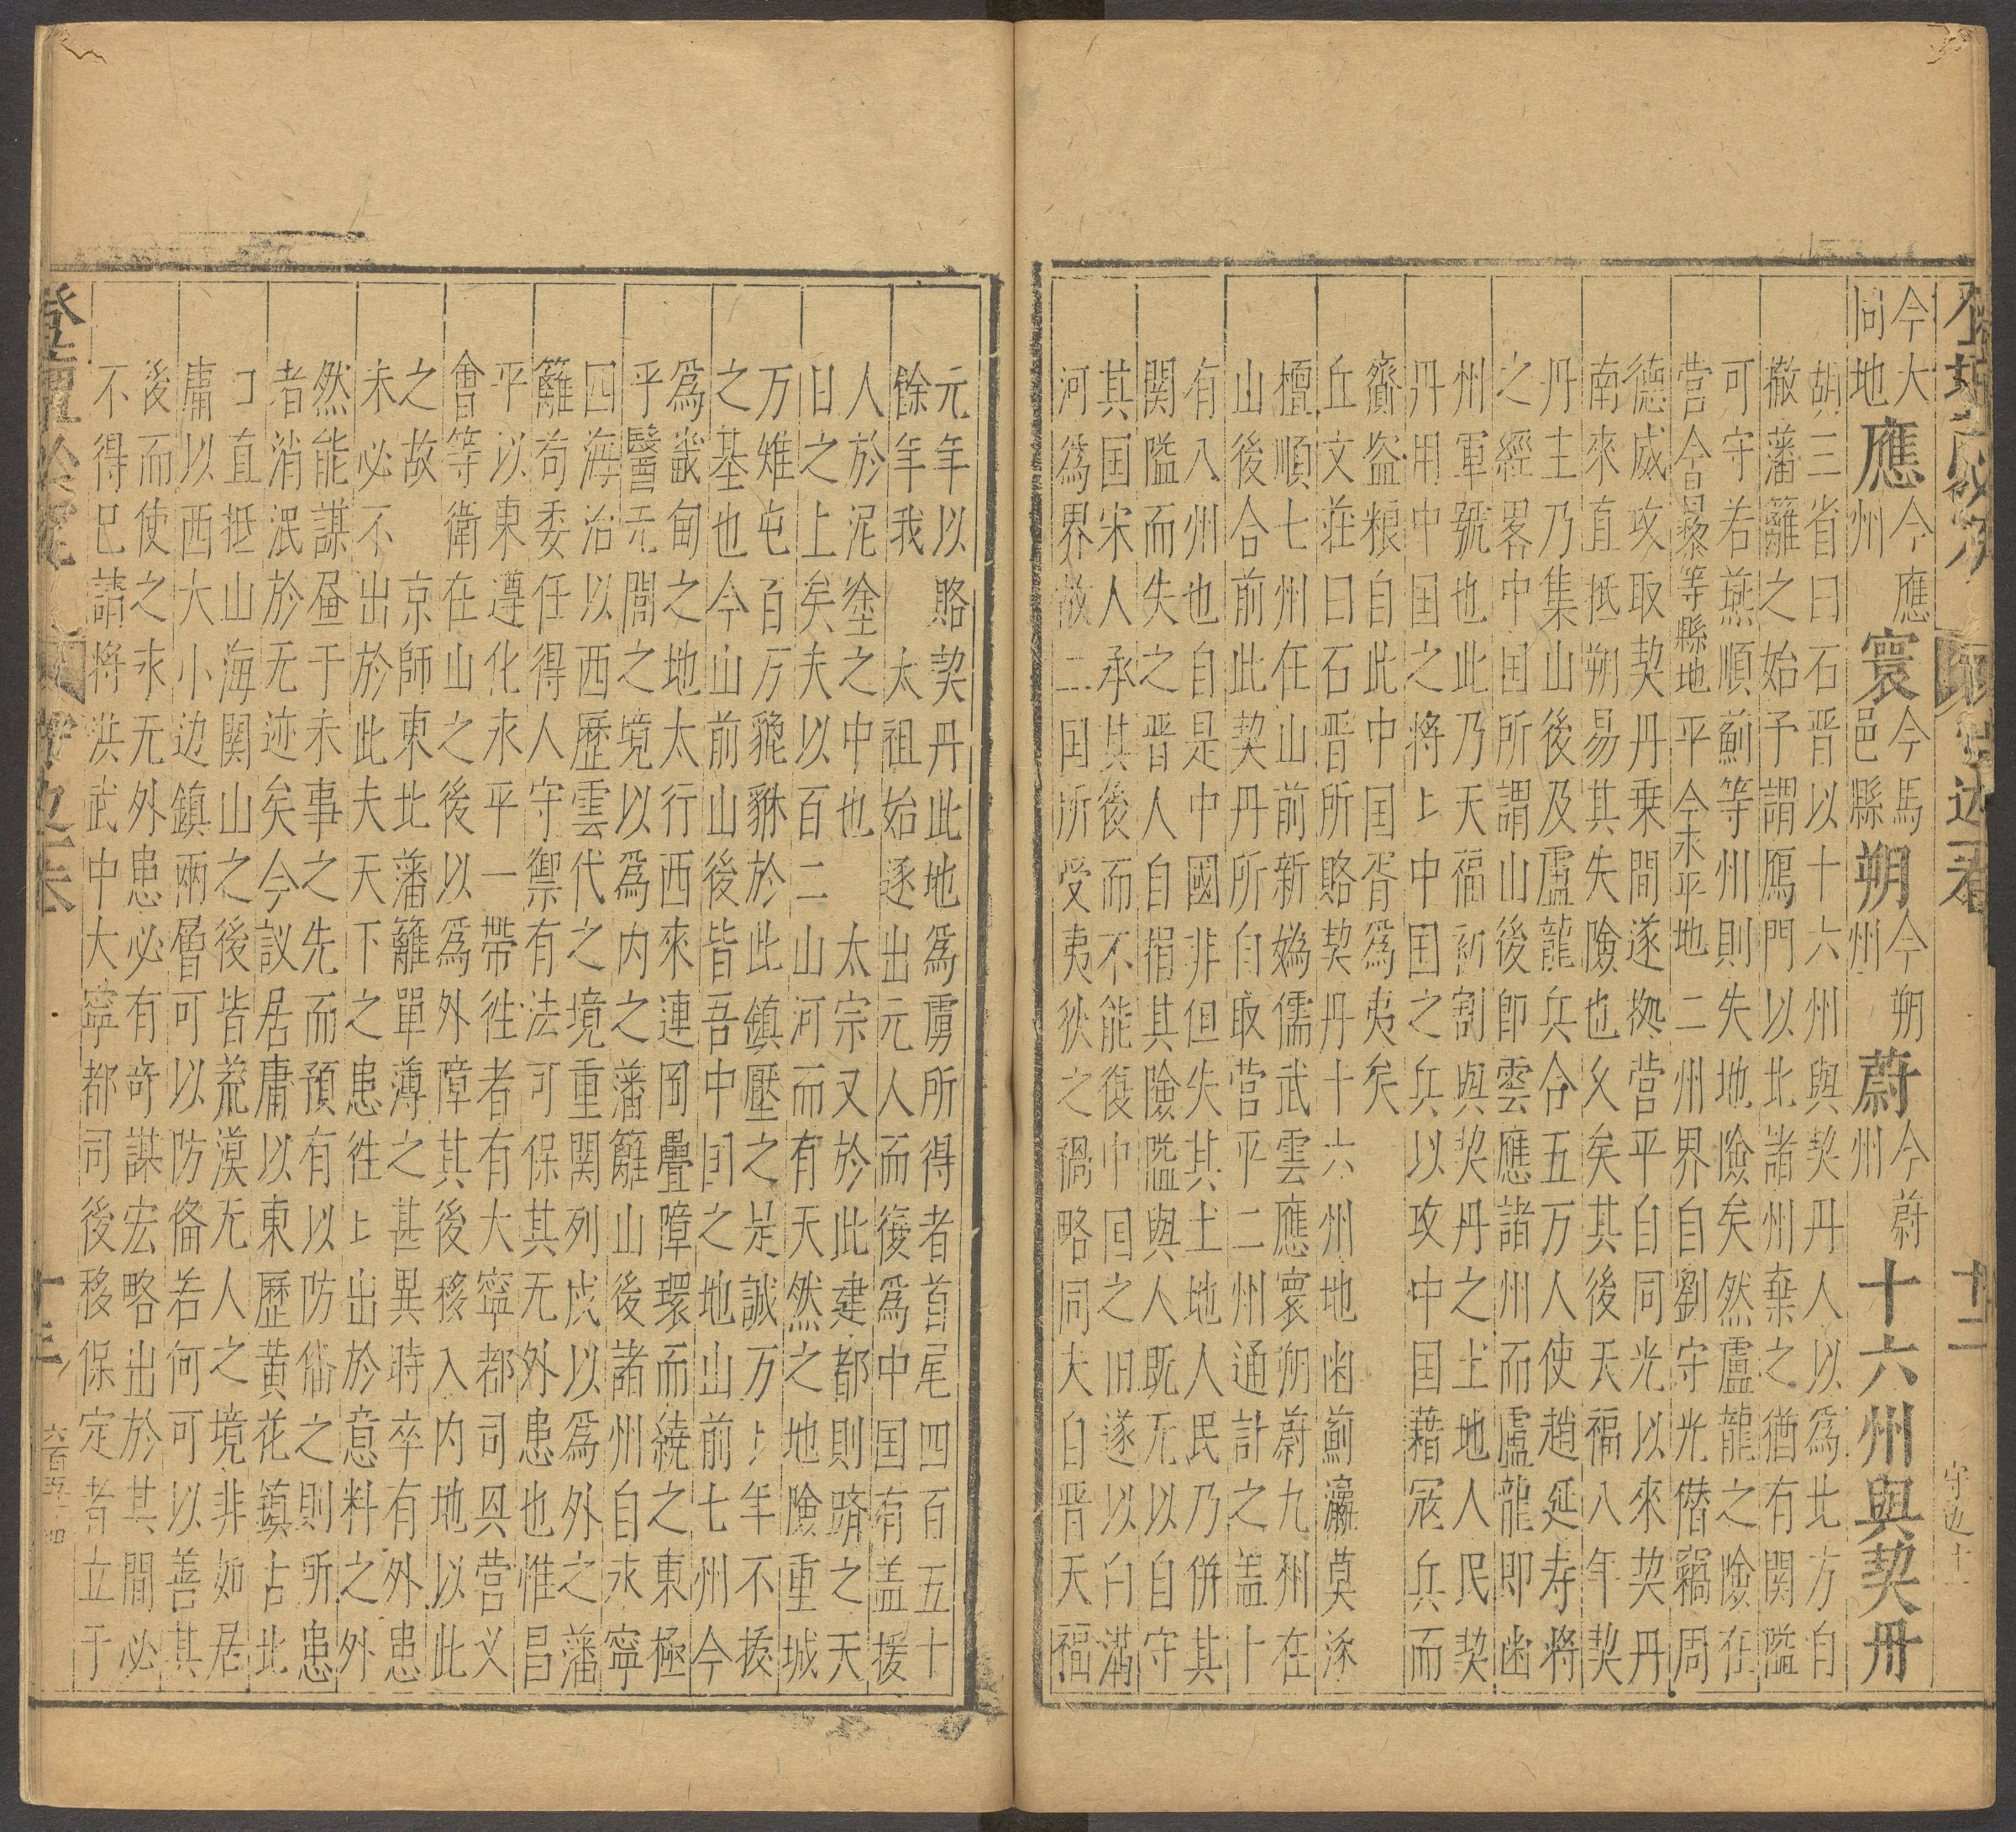 今大
同地應今應
州寰今馬
邑縣朔今朔
州蔚今蔚
州十六州與契丹
胡三省曰石晋以十六州與契丹人以爲北方自
撤藩籬之始予謂鴈門以北諸州棄之猶有関隘
可守若燕順薊等州則失地險矣然盧龍之險在
营今昌黎等縣地平今永平地二州界自劉守光僭竊周
德威攻取契丹乗間遂㨿营平自同光以來契丹
南來直抵朔易其失險也久矣其後天福八年契
丹主乃集山後及盧龍兵合五万人使趙延寿将
之經畧中国所謂山後即雲應諸州而盧龍即幽
州軍號也此乃天福所割與契丹之土地人民契
丹用中国之将上中国之兵以攻中国藉冦兵而
齎盗粮自此中国胥爲夷矣
丘文荘曰石晋所賂契丹十六州地幽薊瀛莫涿
檀順七州在山前新嬀儒武雲應寰朔蔚九州在
山後合前此契丹所自取营平二州通計之盖十
有八州也自是中國非但失其土地人民乃併其
関隘而失之晋人自捐其險隘與人既无以自守
其国宋人承其後而不能復中国之旧遂以白溝
河爲界故二国所受夷狄之禍略同夫自晋天福
元年以賂契丹此地爲虜所得者首尾四百五十
餘年我太祖始逐出元人而復爲中国有盖援
人於泥塗之中也太宗又於此建都則躋之天
日之上矣夫以百二山河而有天然之地險重城
万雉屯百万貔貅於此鎮壓之是誠万上年不拔
之基也今山前山後皆吾中国之地山前七州今
爲畿甸之地太行西來連岡疊障環而繞之東極
乎醫无閭之境以爲内之藩籬山後諸州自永寧
四海治以西歷雲代之境重関列戍以爲外之藩
籬苟委任得人守禦有法可保其无外患也惟昌
平以東遵化永平一帶徃者有大寧都司㒷营义
會等衛在山之後以爲外障其後移入内地以此
之故京師東北藩籬單薄之甚異時卒有外患
未必不出於此夫天下之患徃上出於意料之外
然能謀畨于未事之先而預有以防俻之則所患
者消泯於无迹矣今議居庸以東歷黄花鎮古北
口直抵山海関山之後皆荒漠无人之境非如居
庸以西大小边鎮兩層可以防俻若何可以善其
後而使之永无外患必有奇謀宏略出於其間必
不得已請将洪武中大寧都司後移保定者立于